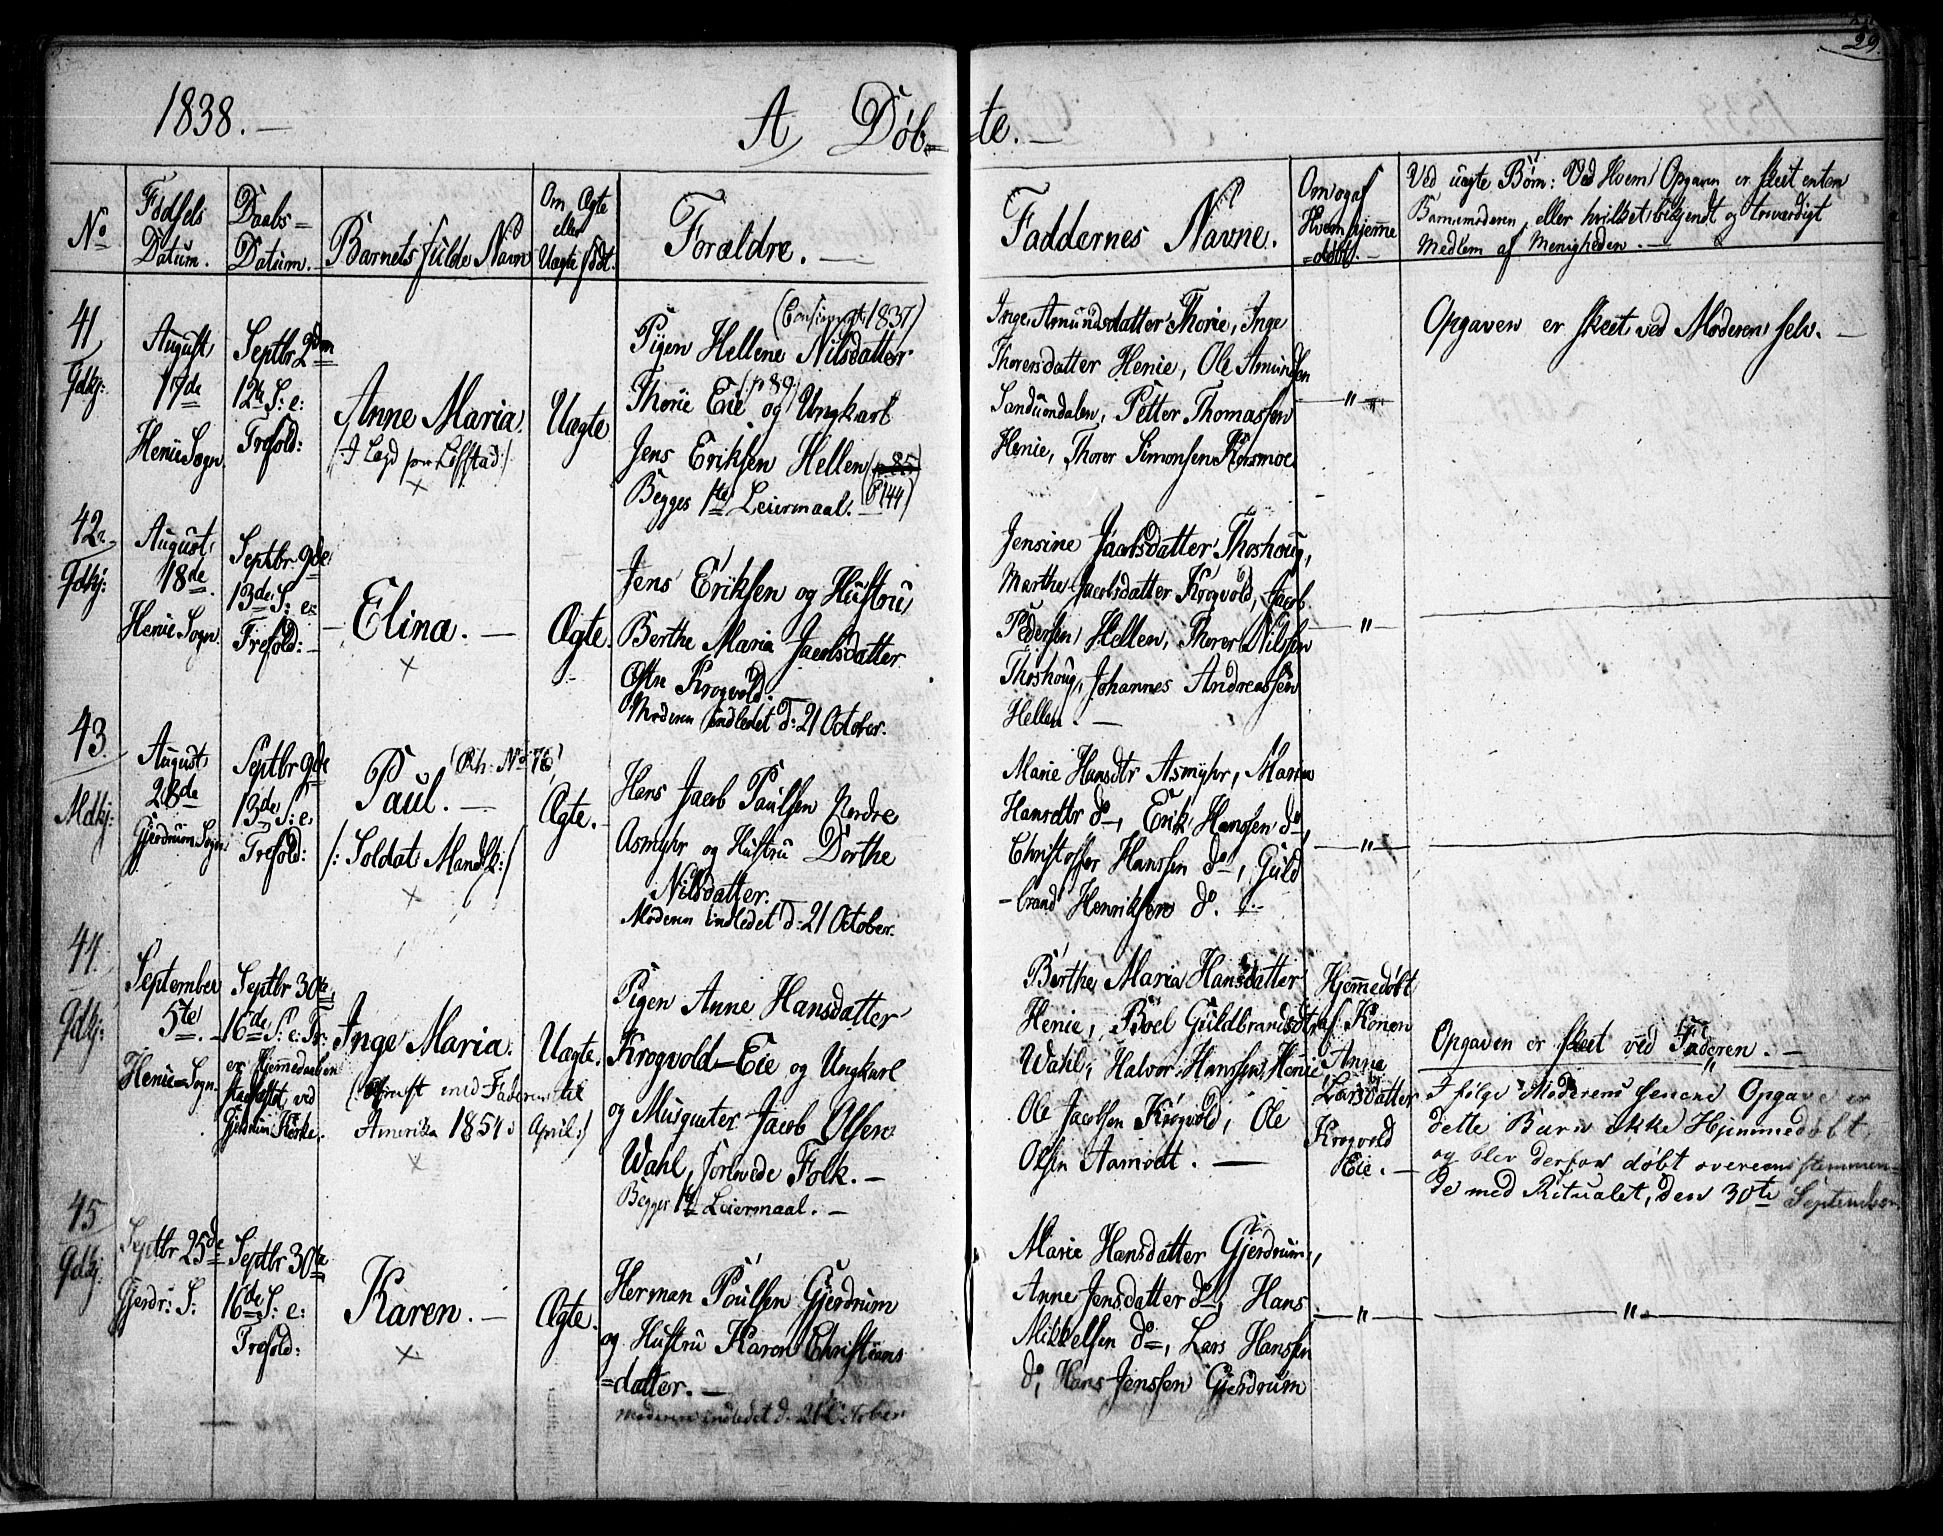 29.
1838. —
A, Døb=te. —
No
Fødsels Datum.
Daabs= Datum.
Barnets fulde Navn
Om Ægte eller Uægte født.
Forældre. —
Faddernes Navne.
Om og af Hvem hjemme =døbt. —
Ved uægte Børn: Ved Hvem Opgaven er skeet enten
Barnemoderen, eller hvilket bekjendt og troværdigt
Medlem af Menigheden. —
41
Gdkj:
August
19de
Henie Sogn
Septbr 2den
12te S: e:
Trefold:
Anne Maria
(I Lægd paa Løfstad)
×
Uægte
(Confirmert 1837)
Pigen Hellene Nilsdatter
(p 89.)
Thorie Eie og Ungkarl
Jens Eriksen Hellen
(P 144)
Begges 1te Leiermaal. —
Inge Amundsdatter Thorie, Inge
Thorersdatter Henie, Ole Amundsen
Sandumdalen, Petter Thomassen
Henie, Thorer Simonsen Korsmoe
— " —
Opgaven er skeet ved Moderen selv. —
42.
Gdkj:
August
18de
Henie Sogn
Septbr 9de
13de S: e:
Trefold: —
— Elina. —
×
Ægte.
Jens Eriksen og Hustru
Berthe Maria Jacobsdatter
Krogvold.
Moderen indledet d: 21 October.
Jensine Jacobsdatter Thoshoug,
Marthe Jacobsdatter Krogvold, Jacob
Pedersen Hellen, Thorer Nilsen
Thoshoug, Johannes Andreassen
Hellen. —
— " —
43.
Mdkj:
August
28de
Gjerdrum Sogn
Septbr 9de
13de S: e:
Trefold:
(Rh: No 76)
Paul. —
/: Soldat Mandsk :/
×
Ægte.
Hans Jacob Paulsen Nordre
Asmyhr og Hustru Dorthe
Nilsdatter.
Moderen indledet d: 21 October.
Marie Hansdtr Asmyhr, Maren
Hansdtr do—, Erik Hanssen do—,
Christoffer Hanssen do—, Guld
-brand Henriksen do. —
— " —
44.
Gdkj:
September
5te —
Henie= Sogn.
Septbr 30te
16de S: e: Tr:
er Hjemmedaaben
stadfæstet ved
Gjerdrum Kirke.
Inge Maria.
(Bortreist med Faderen til
Amerika 1854: April:)
×
Uægte.
Pigen Anne Hansdatter
Krogvold-Eie og Ungkarl
og Musqueter Jacob Olsen
Wahl, forlovede Folk. —
Begges 1te Leiermaal. —
Berthe Maria Hansdatter
Henie, Boel Guldbrandsdtr
Wahl, Halvor Hanssen Henie
Ole Jacobsen Krogvold, Ole
Olsen Aamodt. —
Hjemmedøbt
af Konen
Anne
Larsdatter
Krogvold
Eie. —
Opgaven er skeet ved Faderen. —
I følge Moderens senere Opgave er
dette Barn ikke Hjemmedøbt,
og blev derfor døbt overeensstemmen-
de med Ritualet, den 30te September
45
Gdkj:
Septbr 25de
Gjerdr: S:
Septbr 30te
16de S: e:
Trefold:
Karen. —
×
Ægte.
Herman Poulsen Gjerdrum
og Hustru Karen Christians
=datter. —
Moderen indledet d. 21 October
Marie Hansdatter Gjerdrum,
Anne Jensdatter do—, Hans
Mikkelsen do—, Lars Hansen
do, Hans Jenssen Gjerdrum
— " —
— " —